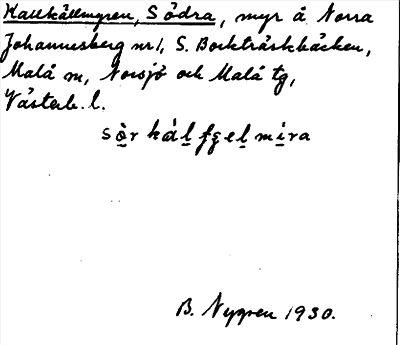 Kallkällmyren, Södra, myr å Norra
Johannesberg nr 1, S. Borkträskbäcken,
Malå sn, Norsjö och Malå tg,
Västerb. l.
B. Nygren 1930.